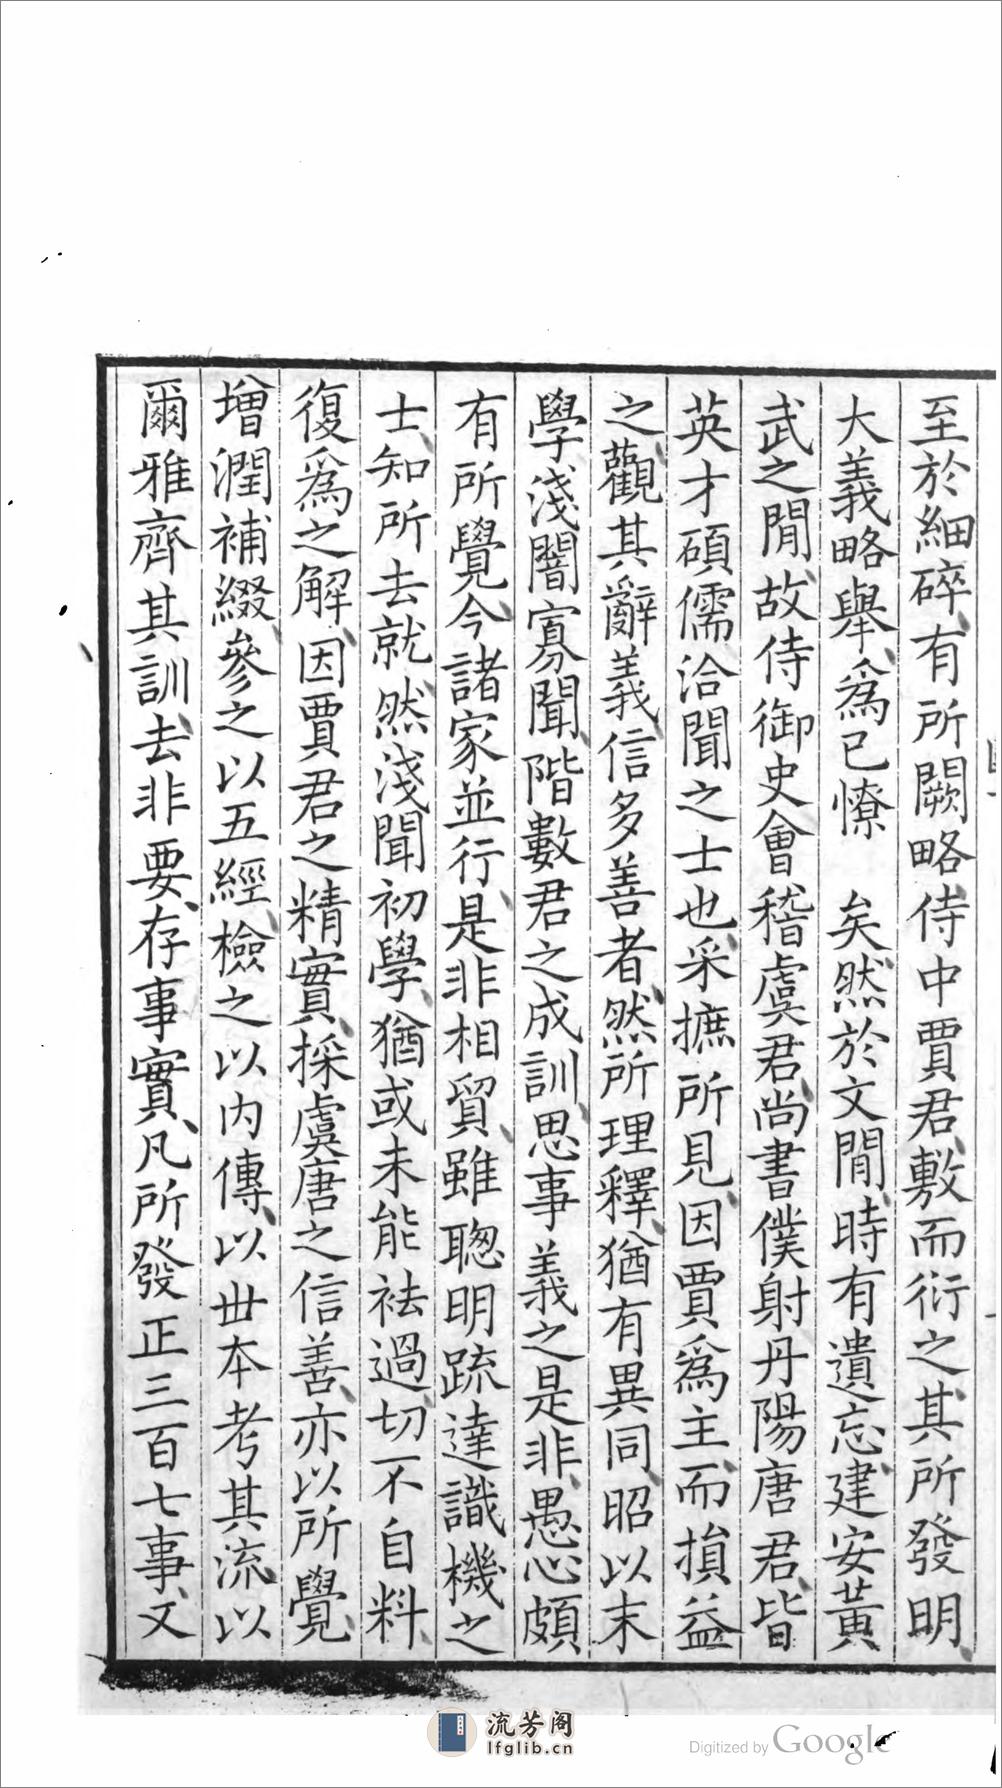 至於細碎、有所闕略侍中賈君、敷而衍之、其所發明、
大義略舉、爲已憭　矣然於文閒、時有遺忘、建安黃
武之閒、故侍御史會稽虞君、尚書僕射丹陽唐君、皆
英才碩儒洽聞之士也、采摭所見、因賈爲主、而損益
之、觀其辭義信多善者、然所理釋、猶有異同、昭以末
學淺闇寡聞、階數君之成訓、思事義之是非、愚心頗
有所覺、今諸家並行、是非相貿、雖聰明疏達識機之
士、知所去就、然淺聞初學、猶或未能袪過、切不自料、
復爲之解、因賈君之精實、採虞唐之信善、亦以所覺、
增潤補綴、參之以五經、檢之以內傳、以世本考其流、以
爾雅齊其訓、去非要、存事實、凡所發正三百七事、又
流芳阁
lfglib.cn
Digitized by Google